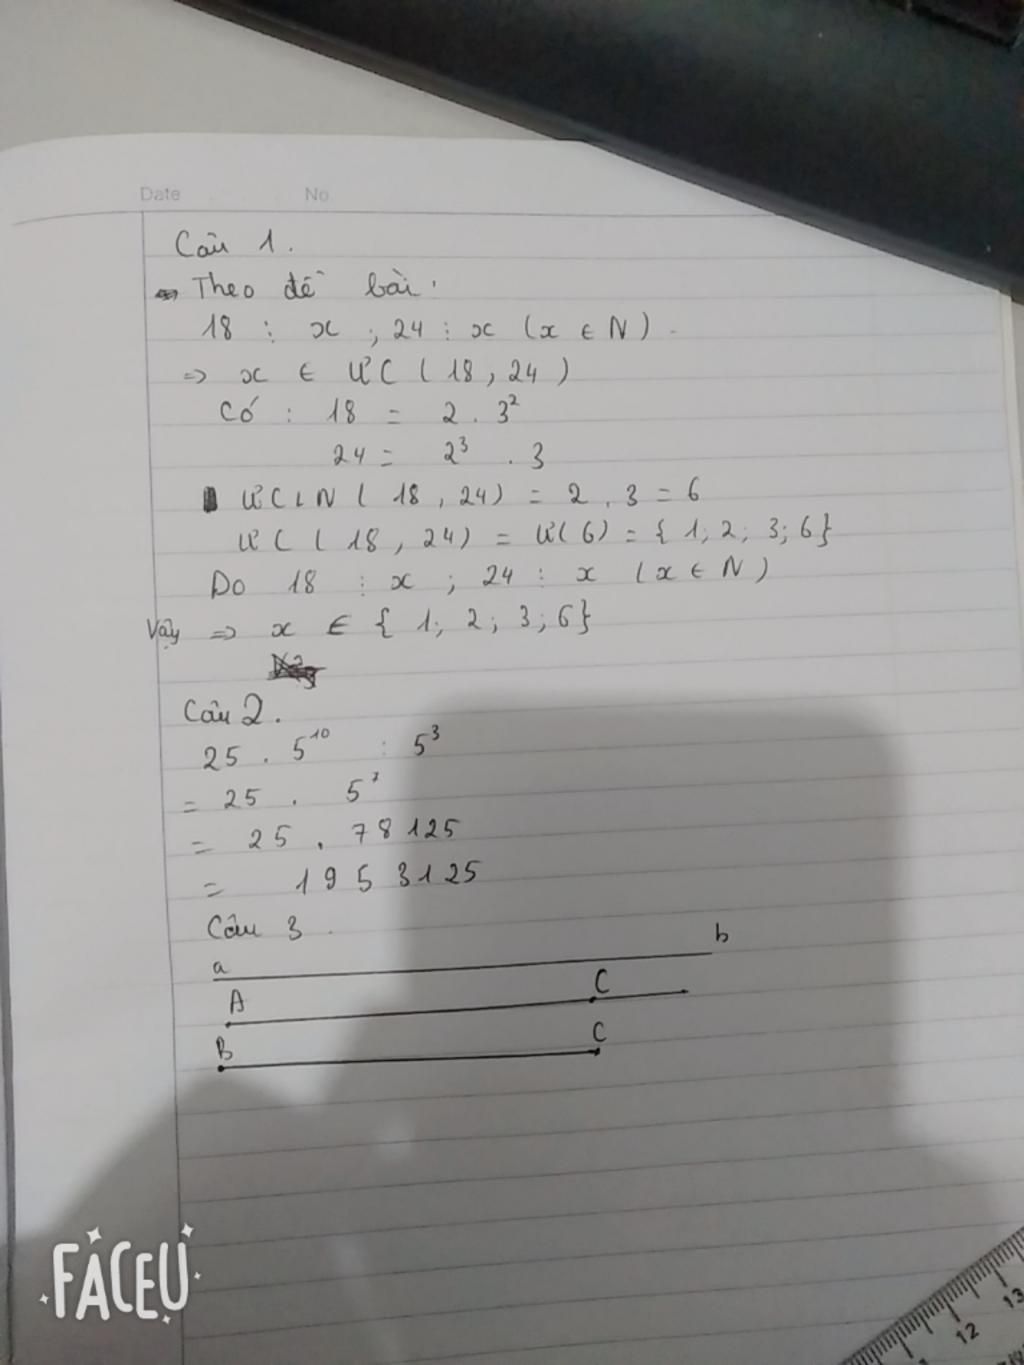 Date No
Câu 1.
Theo đề bài:
18 ⋮ x ; 24 ⋮ x (x ∈ N).
=> x ∈ ƯC ( 18, 24 )
Có : 18 = 2 . 3²
24 = 2³ . 3
ƯCLN ( 18, 24) = 2 . 3 = 6
ƯC ( 18, 24) = Ư(6) = { 1; 2; 3; 6}
Do 18 ⋮ x ; 24 ⋮ x (x ∈ N)
Vậy => x ∈ { 1; 2; 3; 6}
Câu 2.
25 . 5¹⁰ : 5³
= 25 . 5⁷
= 25 . 78125
= 1953125
Câu 3.
a b
A C
B C
FACEU
12 13